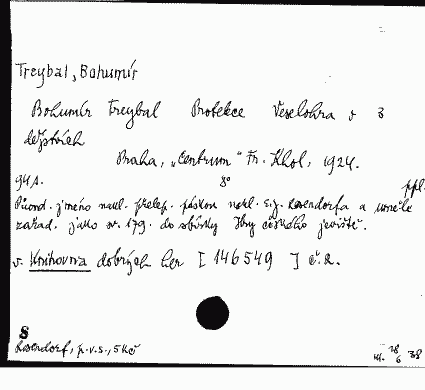 Treybal, Bohumír
Bohumír Treybal Protekce Veselohra v 3
dějstvích
Praha, „Centrum" Fr. Khol, 1924.
94 s. 8° ppl.
Původ. jméno nakl. přelep. páskou nakl. Rosendorfa a uměle
zařad. jako sv. 179. do sbírky Hry českého jeviště.
v. Knihovna dobrých her [146549] č. 2.
8
Rosendorf, p.v.s., 5 Kč
18 6 38